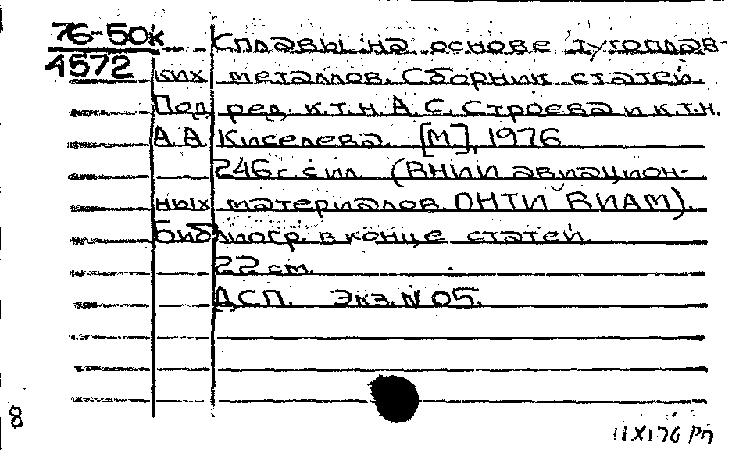 76-50к
4572
Сплавы на основе тугоплав-
ких металлов. Сборник статей.
Под ред. к.т.н. А. С. Строева и к.т.н.
А А Киселева. [М], 1976
246 с. с ил. (ВНИИ авиацион-
ных материалов. ОНТИ ВИАМ).
Библиогр. в конце статей.
22 см.
ДСП. Экз. N 05.
8